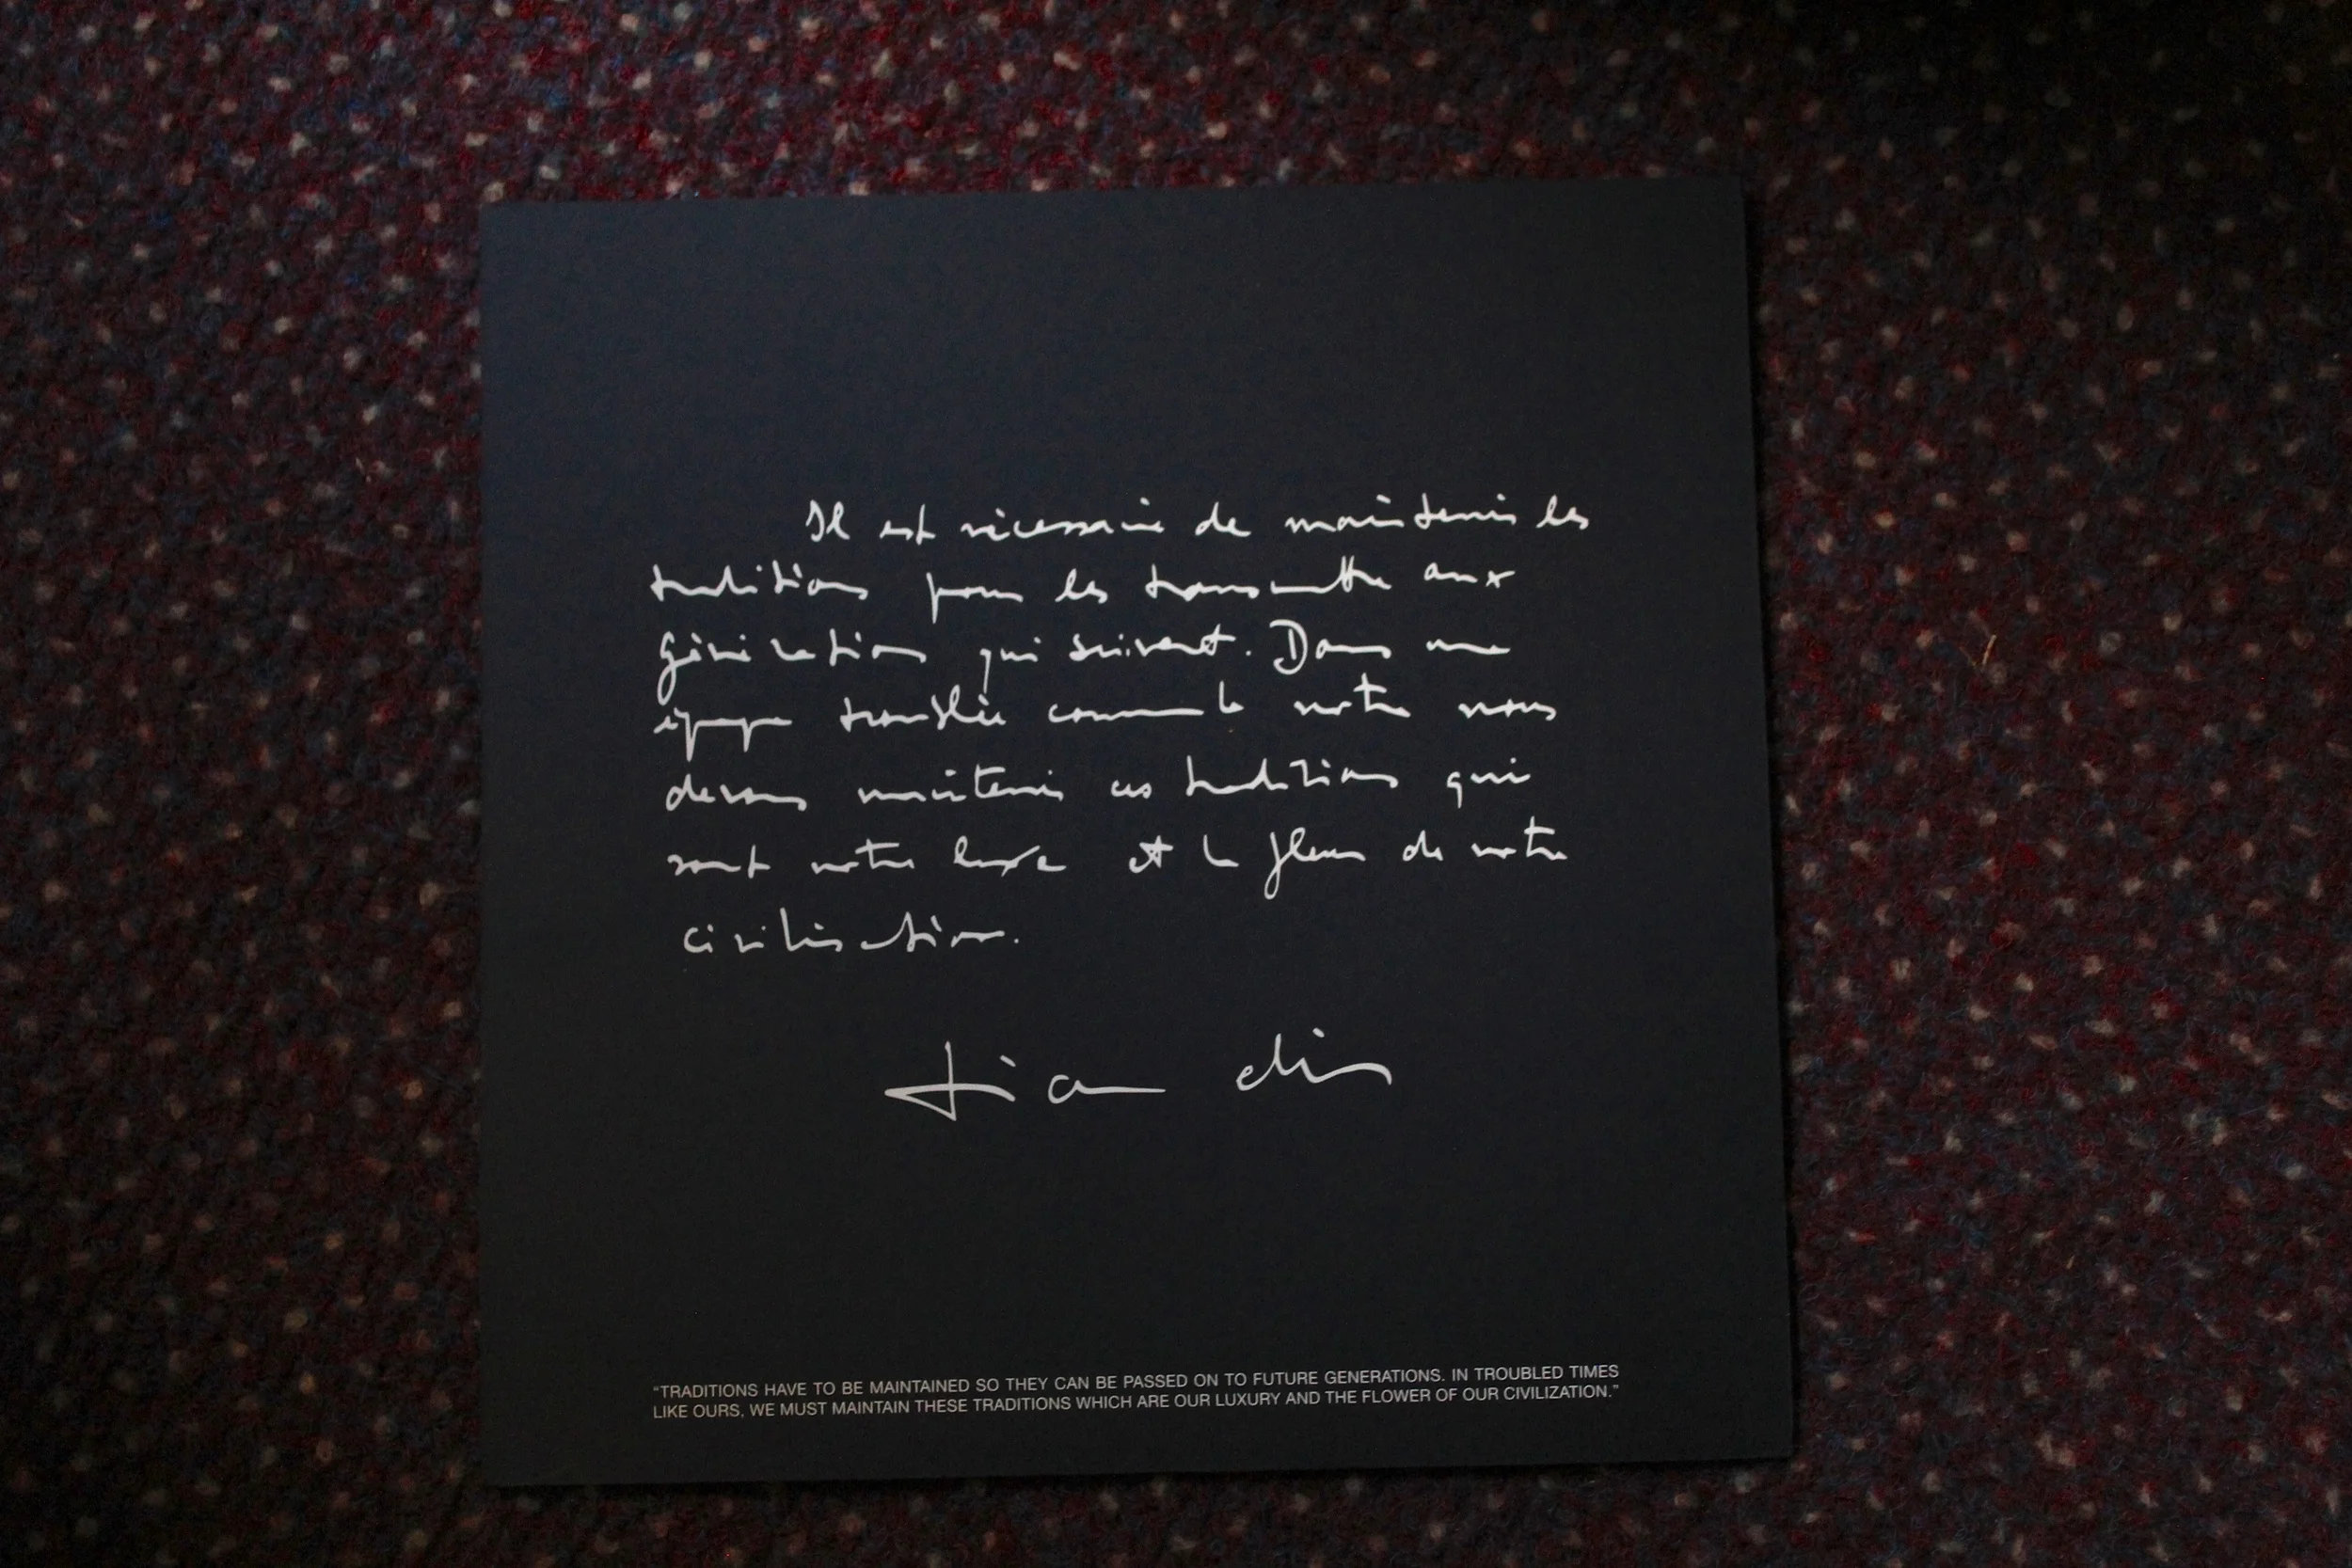 Il est nécessaire de maintenir les
traditions pour les transmettre aux
générations qui suivent. Dans une
époque troublée comme la notre nous
devons maintenir ces traditions qui
sont notre luxe et la fleur de notre
civilisation.
tian dior
“TRADITIONS HAVE TO BE MAINTAINED SO THEY CAN BE PASSED ON TO FUTURE GENERATIONS. IN TROUBLED TIMES
LIKE OURS, WE MUST MAINTAIN THESE TRADITIONS WHICH ARE OUR LUXURY AND THE FLOWER OF OUR CIVILIZATION.”